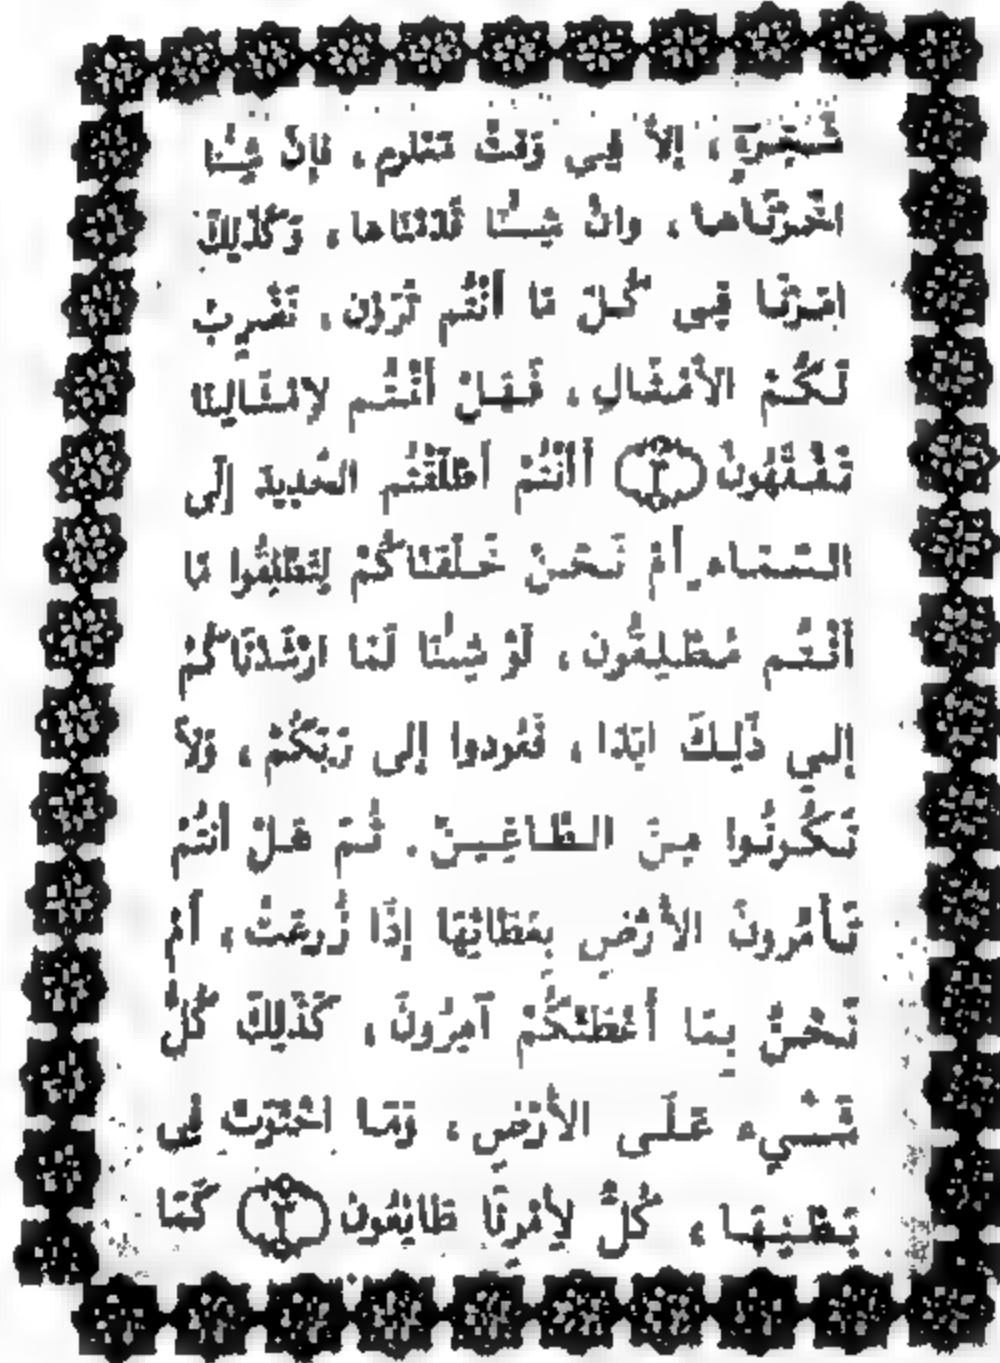 شَجَرَةٍ ، إلاّ فِي وَقتٌ مَعْلُومٍ ، فَإِنْ شِئْنا
اخَّرْنَاهَا ، وانْ شِئْنَا قَدَّمْنَاها ، وَكَذَلِكَ
امْرُنَا فِي كُلّ مَا أَنْتُم تَرَوْن ، نَضْرِبُ
لَكُمْ الأمْثَالِ ، فَهَلْ أَنْتُم لِامْثَالِنَا
تَفْقَهُونْ (٢) أأنْتُمْ أطْلَقْتُم الحَدِيدَ إلَى
السَمَاءِ أمْ نَحْنُ خَلَقْنَاكُمْ لِتَطْلِقُوا مَا
أنْتُم مُطْلِقُون ، لَوْ شِئْنَا لَمَا ارْشَدْنَاكُمْ
إلَي ذَلِكَ ابَدَا ، فَعُودوا إلى رَبَكُمْ ، وَلاَ
تَكُونُوا مِنَ الطَاغِينْ . ثُمّ هَلْ انْتُمْ
تَأمُرونَ الأرْضِ بِعَطَائِهَا إذَا زُرِعَتْ ، أمْ
نَحْنُ بِمَا أَعْطَتْكُمْ آمِرُونَ ، كَذَلِكَ كُلُّ
شَيْء عَلَى الأرْضِ ، وَمَا احْتَوَتْ فِي
بَطْنِهَا ، كُلُّ لِأمْرِنَا طَائِعُونْ (٣) كَمَا